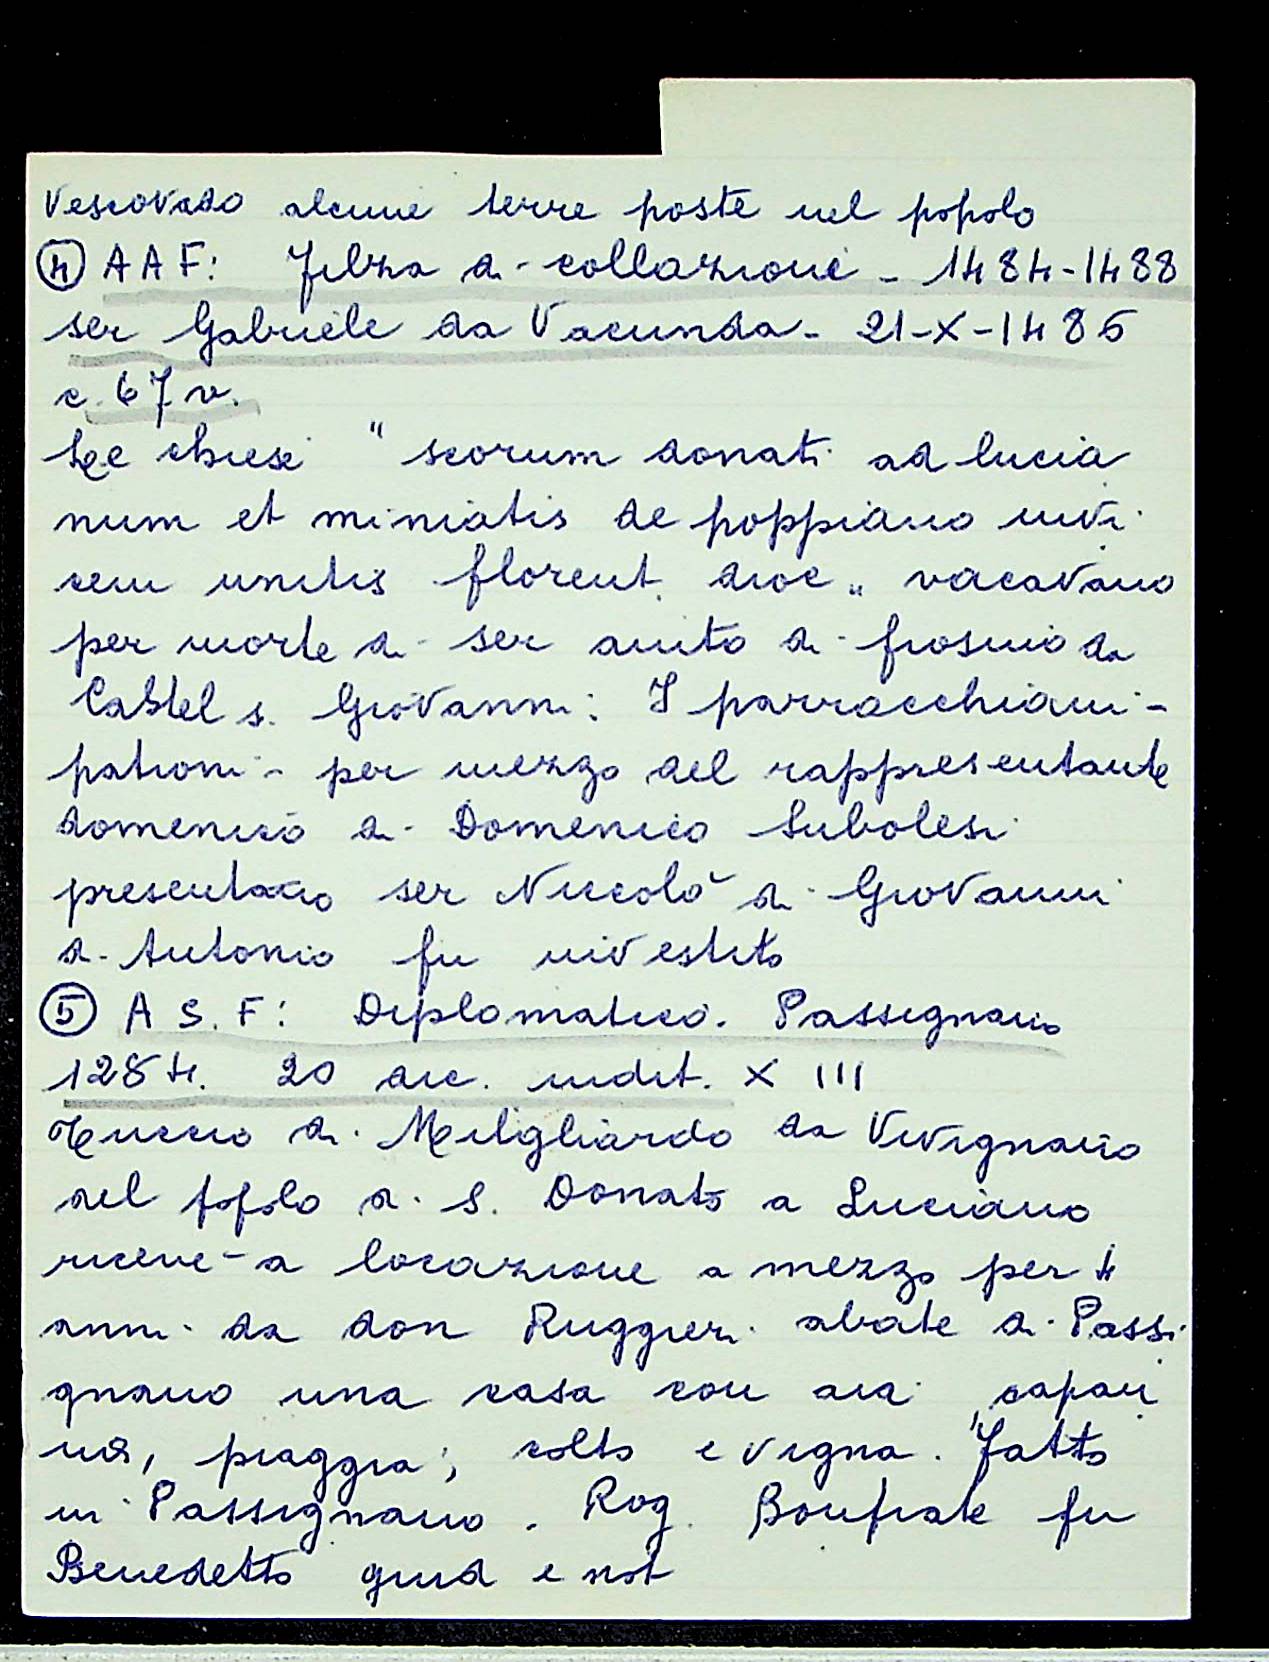 Vescovado alcune terre poste nel popolo
④ AAF: Filza di collazione - 1484-1488
ser Gabriele da Vacunda - 21-X-1485
c. 67 v.
Le chiese " scorum donati ad lucia
num et miniatis de poppiano invi
cem unitis florent. dioc " vacavano
per morte di ser auito di frosino da
Castel s. Giovanni: I parracchiani -
patroni - per mezzo del rappresentante
domenico di Domenico Subolesi
presentano ser Niccolò di Giovanni
di Antonio fu investito
⑤ A S. F: Diplomatico. Passignano
1284. 20 dic. indit. X III
Tuccio di Melgliardo da Vivignano
del popolo di S. Donato a Luciano
riceve - a locazione a mezzo per 4
anni da don Ruggieri abate di Passi
gnano una casa con aia, capan
na, piaggia, colto e vigna. Fatto
in Passignano. Rog. Bonfiate fu
Benedetto giud e not